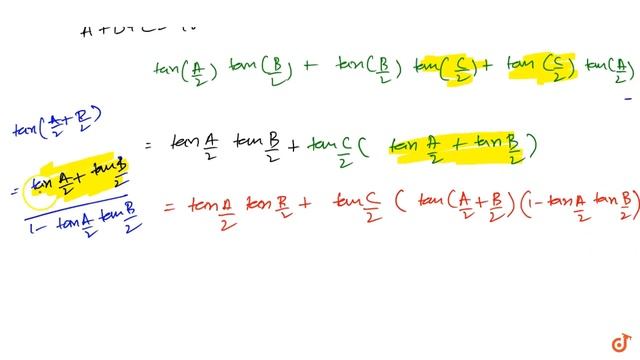 tan(A/2) tan(B/2) + tan(B/2) tan(C/2) + tan(C/2) tan(A/2)
tan(A/2 + B/2)
= tan A/2 tan B/2 + tan C/2 ( tan A/2 + tan B/2 )
= tan A/2 + tan B/2
1 - tan A/2 tan B/2
= tan A/2 tan B/2 + tan C/2 ( tan(A/2 + B/2) (1 - tan A/2 tan B/2)